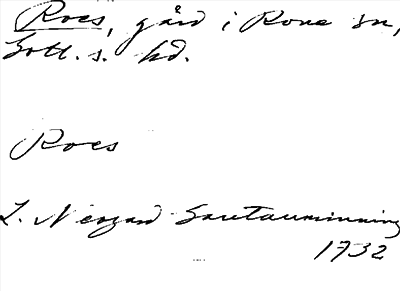 Roes, gård i Rone sn,
Gotl. s. hd.
Roes
L. Nergård Gautauminning
1732